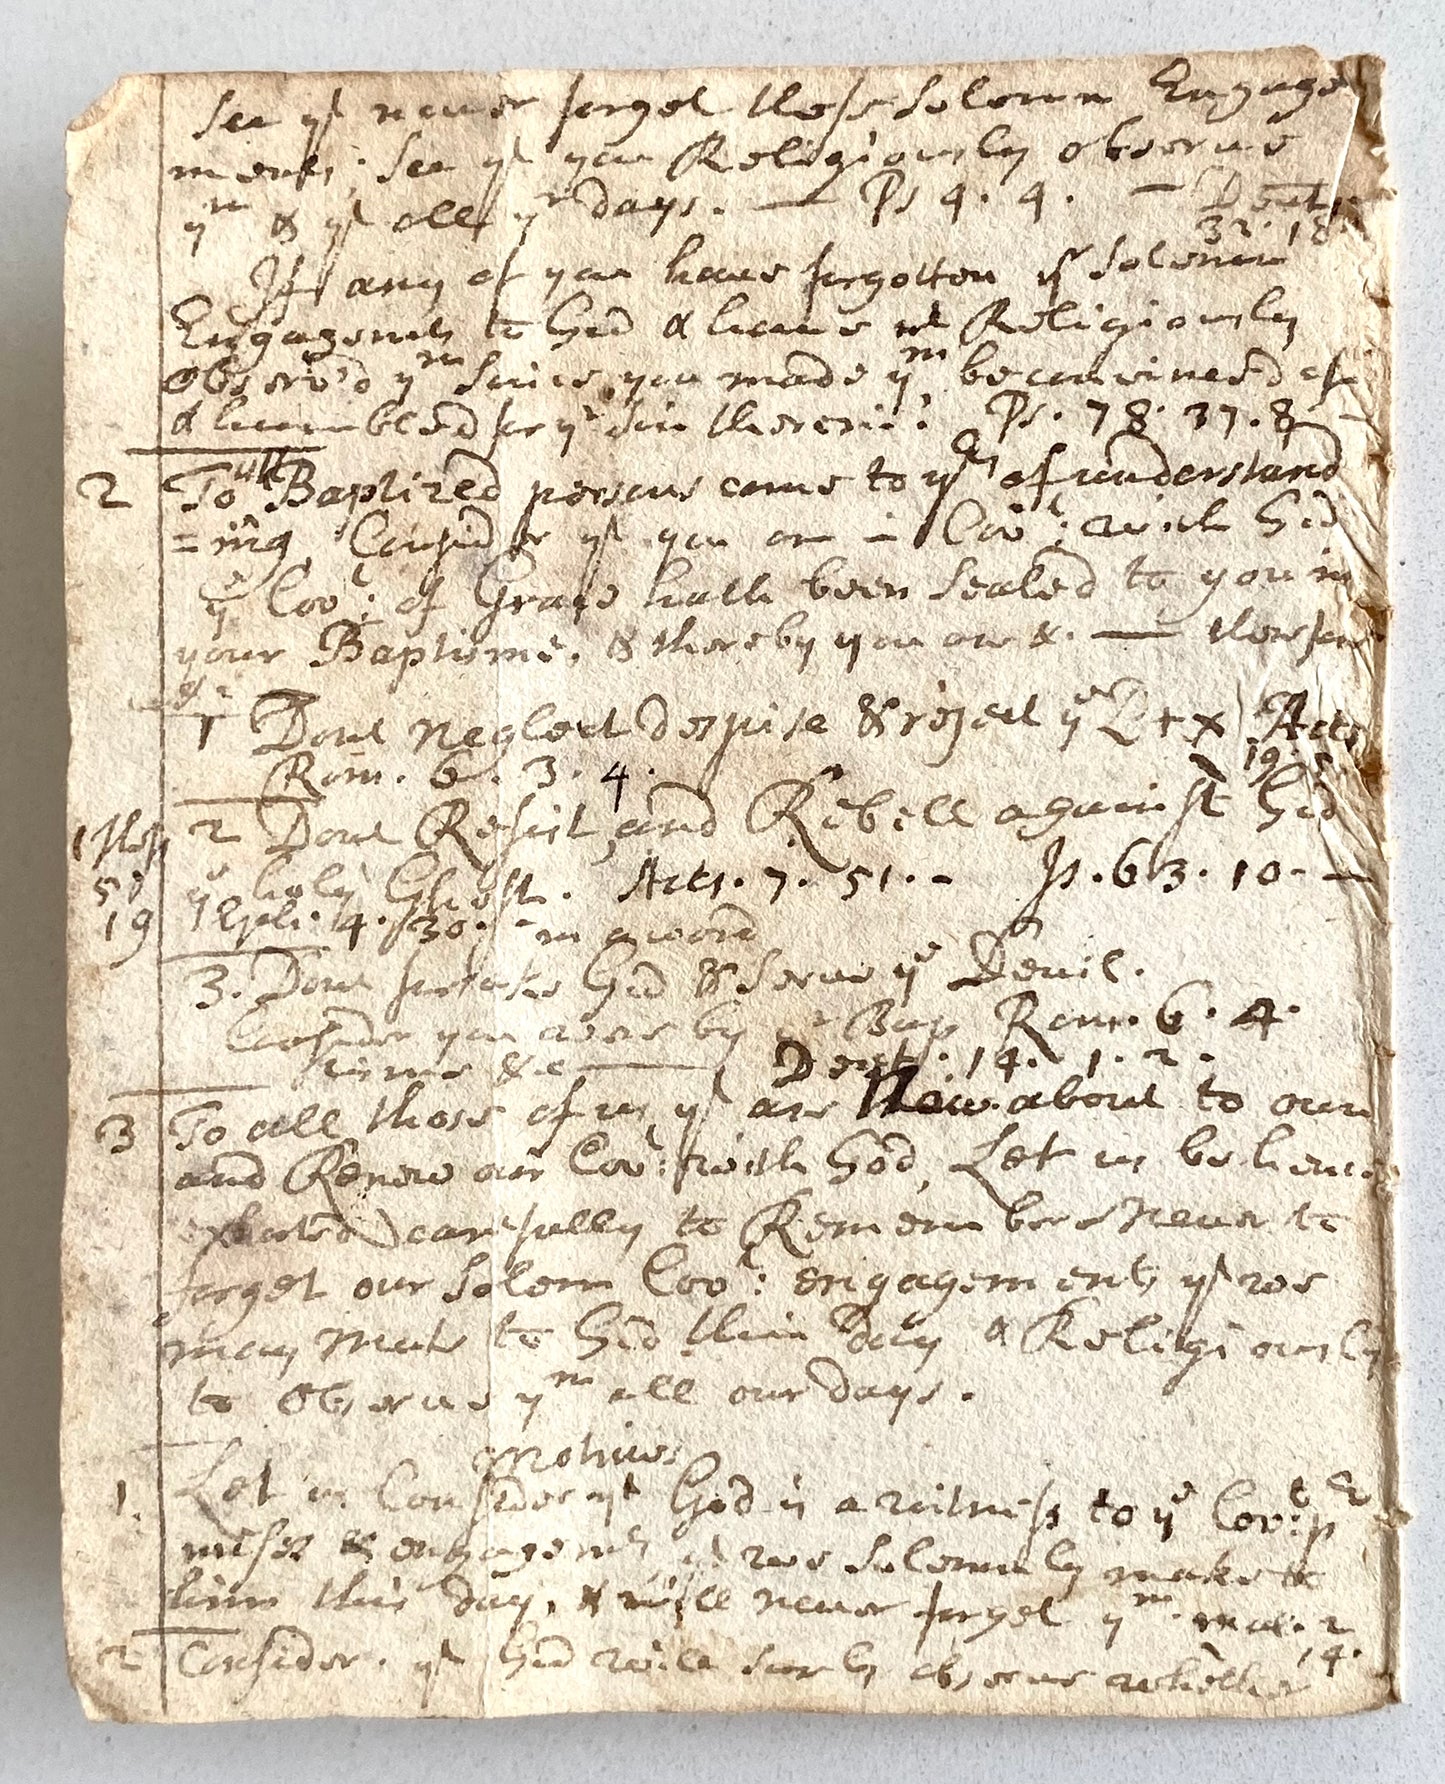 See yt never forget these Solemn Engage
ments; See yt you Religiously observe
ym & yt all yr days. — Ps 4. 4. — Deut.
32. 18.
If any of you have forgotten yr Solemn
Engagemts to God & have not Religiously
observ'd ym since you made ym be convinced of
& humbled for yr Sin therein. Ps. 78. 37. 8
2 To all Baptized persons come to yrs of understand
=ing, Consider yt you are in Covt: with God
ye Covt: of Grace hath been Sealed to you in
your Baptisme. & thereby you are &. — therefore
1 Dont neglect despise & reject ye Acts
Rom. 6. 3. 4. 19. 5
2 Dont Resist, and Rebell against God
1 Thess 5, 19
ye holy Ghost. Acts. 7. 51. - Is. 63. 10. -
Eph. 4. 30. - in a word
3. Dont forsake God & Serve ye Devil.
Consider you were by Bap Rom. 6. 4.
tisme &c — Deut: 14. 1. 2.
3 To all those of us yt are Now about to own
and Renew our Covt: with God, Let us be hence
exhorted carefully to Remember & Never to
forget our Solem Covt: engagements yt we
may make to God this Day & Religiously
to Observe ym all our days.
Motives
1. Let us Consider yt God is a witness to ye Covt: pr
mises & engagemts yt we solemnly make to
him this day, & will never forget ym. Mal. 2
14.
2 Consider. yt God will surely observe whether